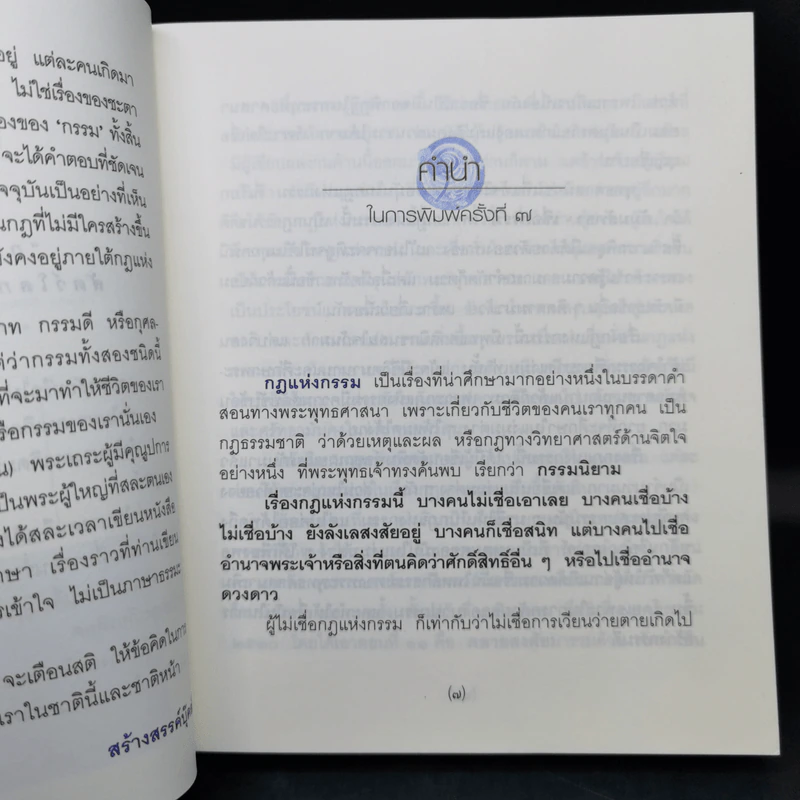 อยู่ แต่ละคนเกิดมา
ไม่ใช่เรื่องของชะตา
ของ 'กรรม' ทั้งสิ้น
จะได้คำตอบที่ชัดเจน
จจุบันเป็นอย่างที่เห็น
นกฎที่ไม่มีใครสร้างขึ้น
ังคงอยู่ภายใต้กฎแห่ง
าท กรรมดี หรือกุศล-
ต่ว่ากรรมทั้งสองชนิดนี้
ที่จะมาทำให้ชีวิตของเรา
รือกรรมของเรานั่นเอง
น) พระเถระผู้มีคุณูปการ
เป็นพระผู้ใหญ่ที่สละตนเอง
งได้สละเวลาเขียนหนังสือ
กษา เรื่องราวที่ท่านเขียน
ารเข้าใจ ไม่เป็นภาษาธรรมะ
จะเตือนสติ ให้ข้อคิดในการ
เราในชาตินี้และชาติหน้า
สร้างสรรค์บุ๊คส์
คำนำ
ในการพิมพ์ครั้งที่ ๗
กฎแห่งกรรม เป็นเรื่องที่น่าศึกษามากอย่างหนึ่งในบรรดาคำ
สอนทางพระพุทธศาสนา เพราะเกี่ยวกับชีวิตของคนเราทุกคน เป็น
กฎธรรมชาติ ว่าด้วยเหตุและผล หรือกฎทางวิทยาศาสตร์ด้านจิตใจ
อย่างหนึ่ง ที่พระพุทธเจ้าทรงค้นพบ เรียกว่า กรรมนิยาม
เรื่องกฎแห่งกรรมนี้ บางคนไม่เชื่อเอาเลย บางคนเชื่อบ้าง
ไม่เชื่อบ้าง ยังลังเลสงสัยอยู่ บางคนก็เชื่อสนิท แต่บางคนไปเชื่อ
อำนาจพระเจ้าหรือสิ่งที่ตนคิดว่าศักดิ์สิทธิ์อื่น ๆ หรือไปเชื่ออำนาจ
ดวงดาว
ผู้ไม่เชื่อกฎแห่งกรรม ก็เท่ากับว่าไม่เชื่อการเวียนว่ายตายเกิดไป
(๗)